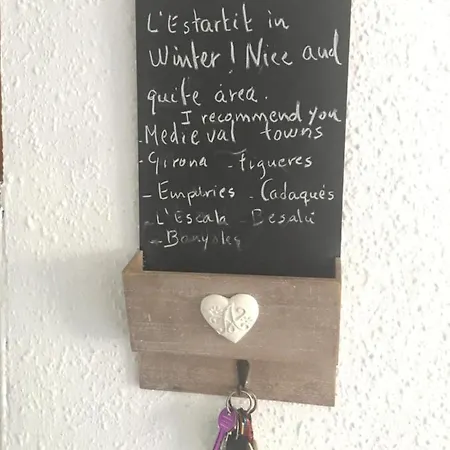 L'Estartit in
Winter! Nice and
quite área.
I recommend you
- Medieval towns
- Girona - Figueres
- Empuries - Cadaqués
- L'Escala - Besalú
- Banyoles